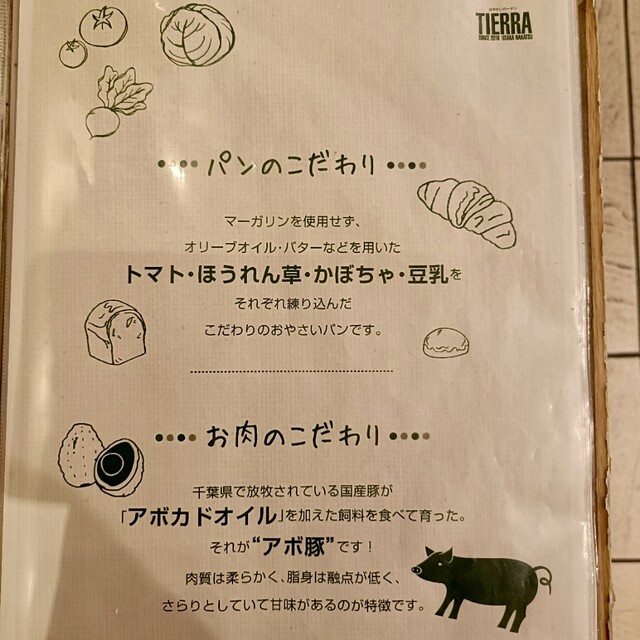 おやさいガーデン
TIERRA
SINCE 2018 OSAKA NAKATSU
パンのこだわり
マーガリンを使用せず、
オリーブオイル・バターなどを用いた
トマト・ほうれん草・かぼちゃ・豆乳を
それぞれ練り込んだ
こだわりのおやさいパンです。
お肉のこだわり
千葉県で放牧されている国産豚が
「アボカドオイル」を加えた飼料を食べて育った。
それが“アボ豚”です！
肉質は柔らかく、脂身は融点が低く、
さらりとしていて甘味があるのが特徴です。